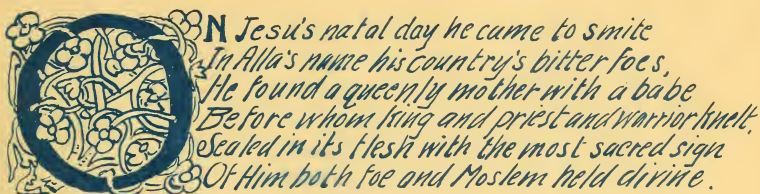 ON Jesu's natal day he came to smite
In Alla's name his country's bitter foes,
He found a queenly mother with a babe
Before whom king and priest and warrior knelt,
Sealed in its flesh with the most sacred sign
Of Him both foe and Moslem held divine.